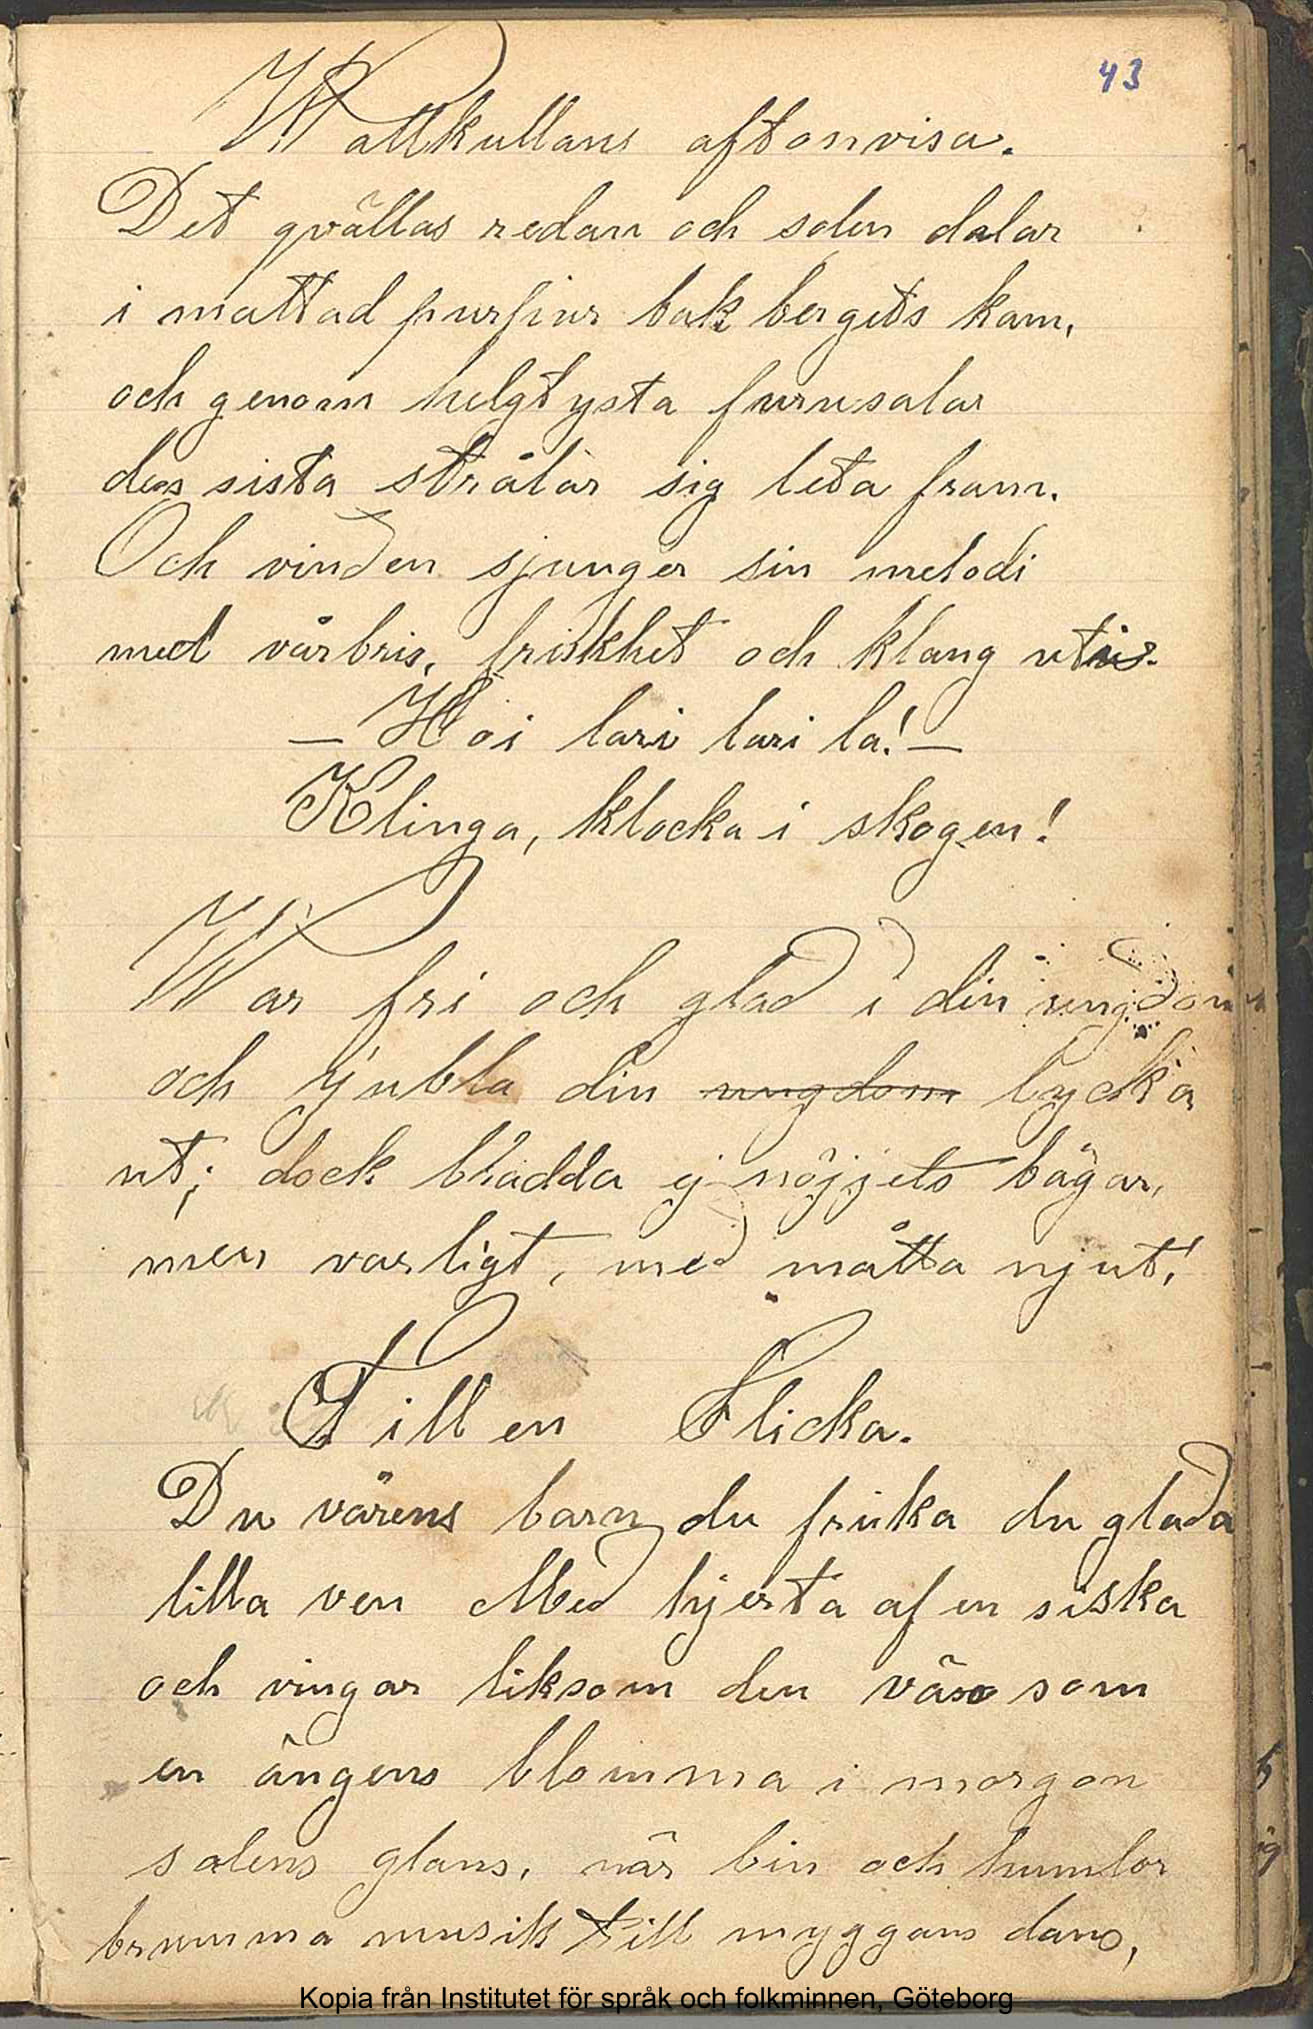 43
Wallkullans aftonvisa.
Det qvällas redan och solen dalar
i mattad purpur bak bergets kam,
och genom helgtysta furusalar
dess sista strålar sig leta fram.
Och vinden sjunger sin melodi
med vårbris, friskhet och klang uti
— Hoi lari lari la! —
Klinga, klocka i skogen!
War fri och glad i din ungdom
och jubla din ungdom lycka
ut; dock bladda ej nöjjets bägar,
men varligt, med måtta njut!
Till en Flicka.
Du vårens barn du friska du glada
lilla ven Med hjerta af en siska
och vingar liksom den väx som
en ängens blomma i morgon
solens glans, när bin och humlor
brumma musik till myggans dans,
Kopia från Institutet för språk och folkminnen, Göteborg